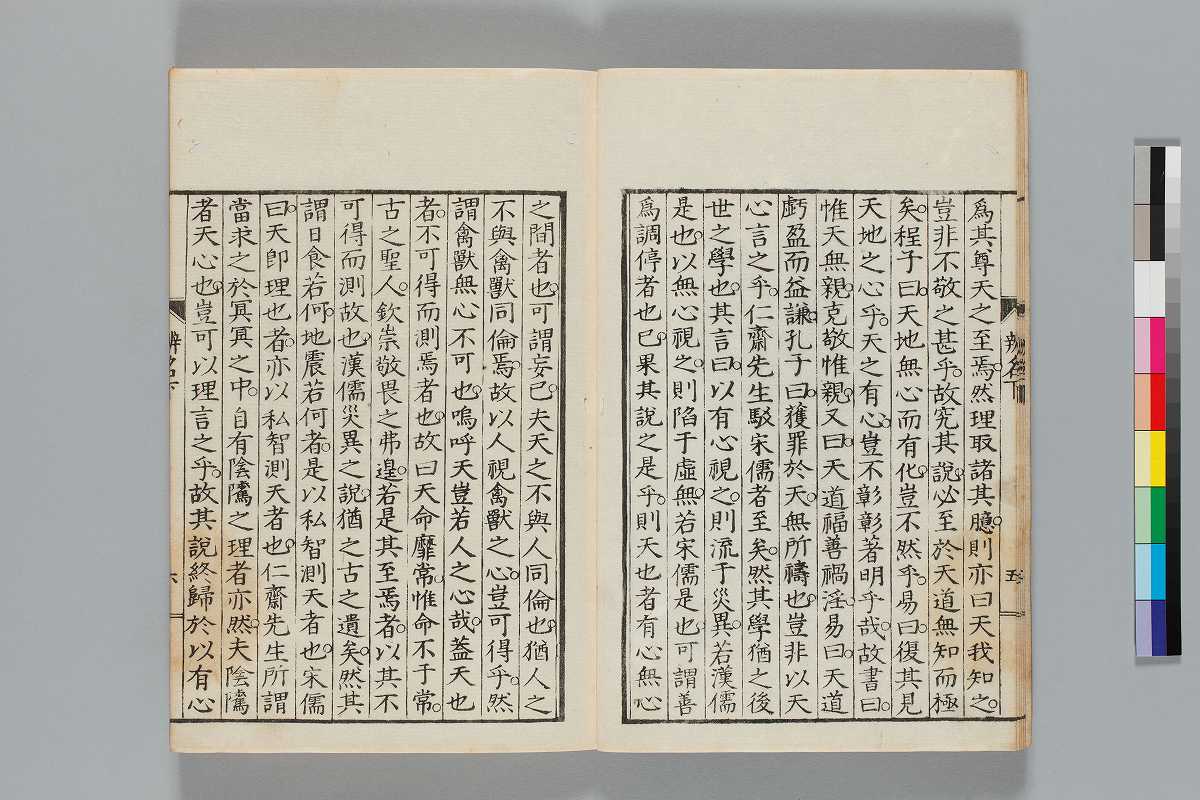 爲其尊天之至焉。然理取諸其臆。則亦曰天我知之。
豈非不敬之甚乎。故究其說。必至於天道無知而極
矣。程子曰。天地無心而有化。豈不然乎。易曰。復其見
天地之心乎。天之有心。豈不彰彰著明乎哉。故書曰。
惟天無親。克敬惟親。又曰。天道福善禍淫。易曰。天道
虧盈而益謙。孔子曰。獲罪於天。無所禱也。豈非以天
心言之乎。仁齋先生駁宋儒者至矣。然其學猶之後
世之學也。其言曰。以有心視之。則流于災異。若漢儒
是也。以無心視之。則陷于虛無。若宋儒是也。可謂善
爲調停者也已。果其說之是乎。則天也者有心無心
之間者也。可謂妄已。夫天之不與人同倫也。猶人之
不與禽獸同倫焉。故以人視禽獸之心。豈可得乎。然
謂禽獸無心不可也。嗚呼天豈若人之心哉。蓋天也
者。不可得而測焉者也。故曰天命靡常。惟命不于常。
古之聖人。欽崇敬畏之弗遑。若是其至焉者。以其不
可得而測故也。漢儒災異之說。猶之古之遺矣。然其
謂日食若何。地震若何者。是以私智測天者也。宋儒
曰。天卽理也者。亦以私智測天者也。仁齋先生所謂
當求之於冥冥之中。自有陰騭之理者亦然。夫陰騭
者天心也。豈可以理言之乎。故其說終歸於以有心
辨名下
五
六